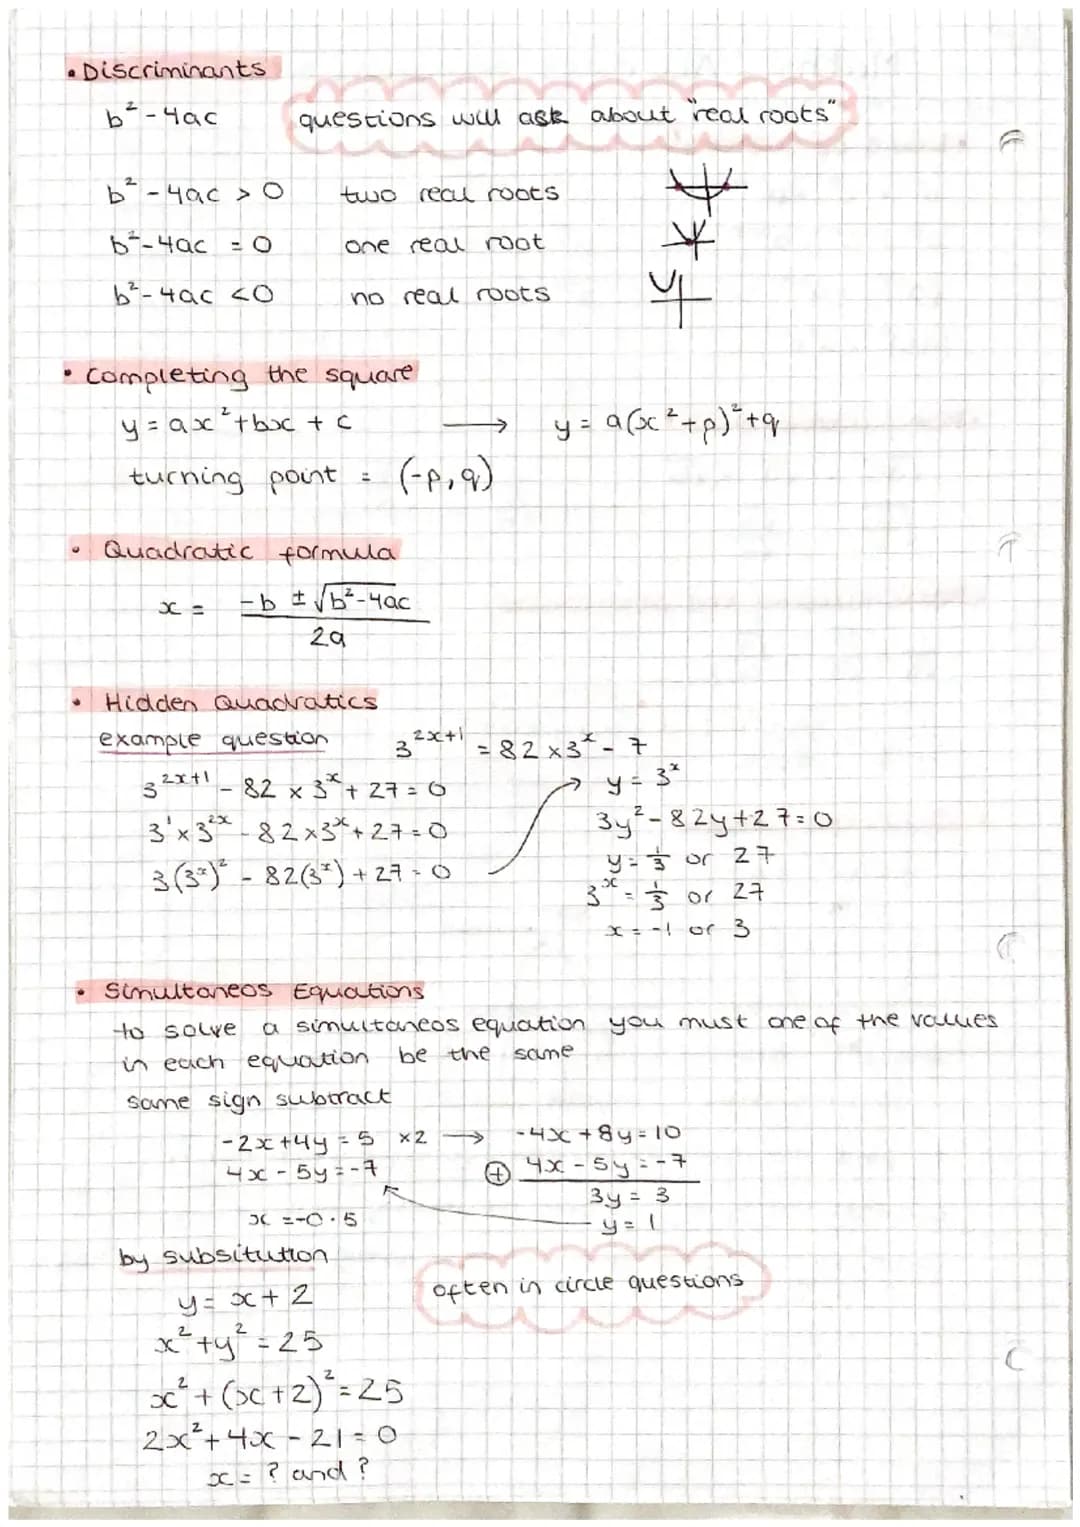 • Discriminants
b² - 4ac questions will ask about "real roots"
b² - 4ac > 0 two real roots
b² - 4ac = 0 one real root
b² - 4ac < 0 no real roots
• Completing the square
y = ax² + bx + c → y = a(x² + p)² + q
turning point = (-p, q)
• Quadratic formula
x = -b ± √b² - 4ac
2a
• Hidden Quadratics
example question 3^{2x+1} = 82 × 3^x - 7
3^{2x+1} - 82 × 3^x + 27 = 0
3¹ × 3^{2x} - 82 × 3^x + 27 = 0
3(3^x)² - 82(3^x) + 27 = 0
→ y = 3^x
3y² - 82y + 27 = 0
y = 1/3 or 27
3^x = 1/3 or 27
x = -1 or 3
• Simultaneos Equations
to solve a simultaneos equation you must one of the values
in each equation be the same
same sign subtract
-2x + 4y = 5 ×2 → -4x + 8y = 10
4x - 5y = -7 ⊕ 4x - 5y = -7
3y = 3
x = -0.5 y = 1
by subsitution
often in circle questions
y = x + 2
x² + y² = 25
x² + (x + 2)² = 25
2x² + 4x - 21 = 0
x = ? and ?